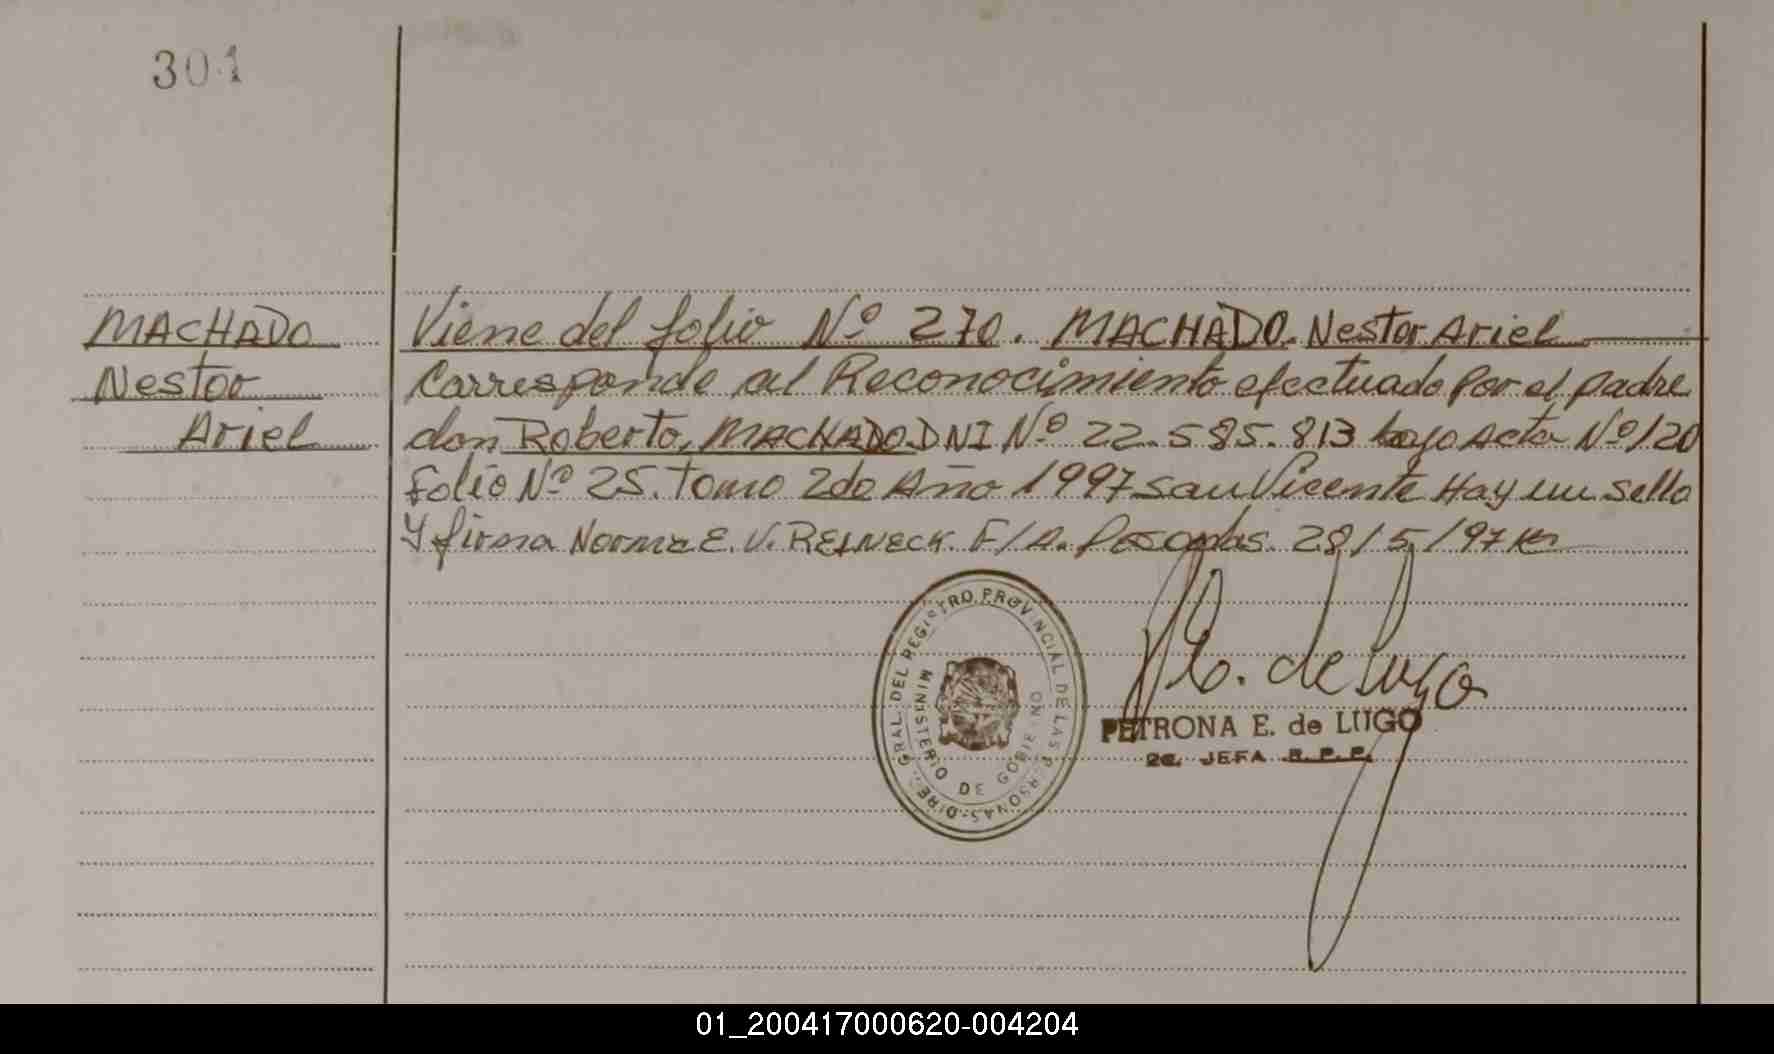 301
MACHADO
Nestor
Ariel
Viene del folio Nº 270. MACHADO. Nestor Ariel
Corresponde al Reconocimiento efectuado por el padre
don Roberto, MACHADO. DNI Nº 22.585.813 bajo Acta Nº 120
Folio Nº 25. Tomo 2do Año 1997 San Vicente Hay un sello
Y firma Norma E. V. REINECK F/A. Posadas. 28/5/97
DIREC. GRAL. DEL REGISTRO PROVINCIAL DE LAS PERSONAS
MINISTERIO DE GOBIERNO
de Lugo
PETRONA E. de LUGO
2a. JEFA R.P.P.
01_200417000620-004204